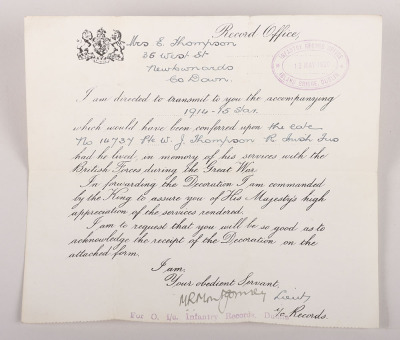 Record Office,
Mrs E. Thompson
36 West St
Newtownards
Co Down.
I am directed to transmit to you the accompanying
1914-15 Star.
which would have been conferred upon the late
No 14737 Pte W. J. Thompson R Irish Fus
had he lived, in memory of his services with the
British Forces during the Great War.
In forwarding the Decoration I am commanded
by the King to assure you of His Majesty's high
appreciation of the services rendered.
I am to request that you will be so good as to
acknowledge the receipt of the Decoration on the
attached form.
I am,
Your obedient Servant,
Montgomery Lieut
For O. i/c. Infantry Records,
i/c Records.